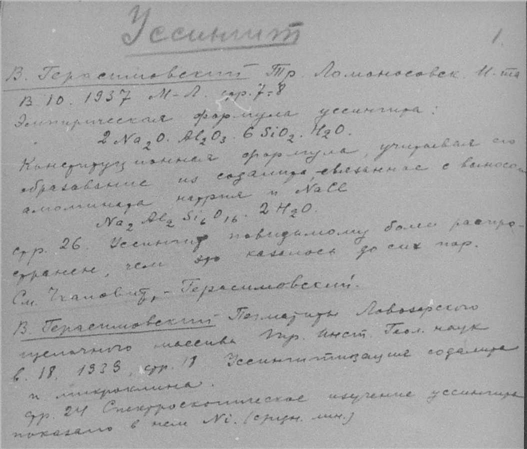 Уссингит
1.
В. Герасимовский Тр. Ломоносовск. И-та
в 10. 1937 М-Л. стр. 7-8
Эмпирическая формула уссингита:
2 Na2O. Al2O3. 6 SiO2. H2O.
Конституционная формула, учитывая его
образование из содалита связанное с выносом
алюмината натрия и NaCl
Na2 Al2 Si6 O16. 2 H2O.
стр. 26. Уссингит повидимому более распро-
странен, чем это казалось до сих пор.
См. Чкаловит, - Герасимовский.
В. Герасимовский Пегматиты Ловозерского
щелочного массива Тр. Инст. Геол. наук
в. 18. 1939, стр. 19 Уссингитизация содалита
и микроклина.
стр. 24 Спектроскопическое изучение уссингита
показало в нем Ni. (средн. лин.)